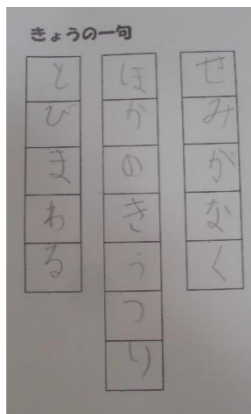 きょうの一句
せみがなく
ほかのきうつり
とびまわる